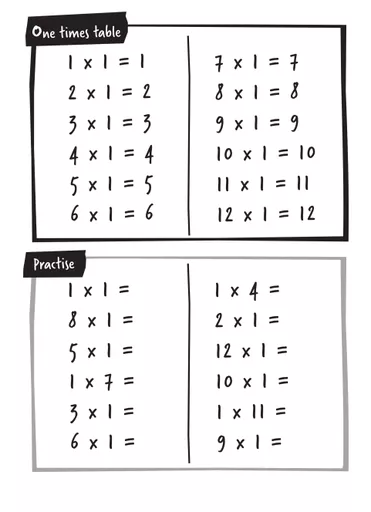 One times table
1 x 1 = 1
2 x 1 = 2
3 x 1 = 3
4 x 1 = 4
5 x 1 = 5
6 x 1 = 6
7 x 1 = 7
8 x 1 = 8
9 x 1 = 9
10 x 1 = 10
11 x 1 = 11
12 x 1 = 12
Practise
1 x 1 =
8 x 1 =
5 x 1 =
1 x 7 =
3 x 1 =
6 x 1 =
1 x 4 =
2 x 1 =
12 x 1 =
10 x 1 =
1 x 11 =
9 x 1 =